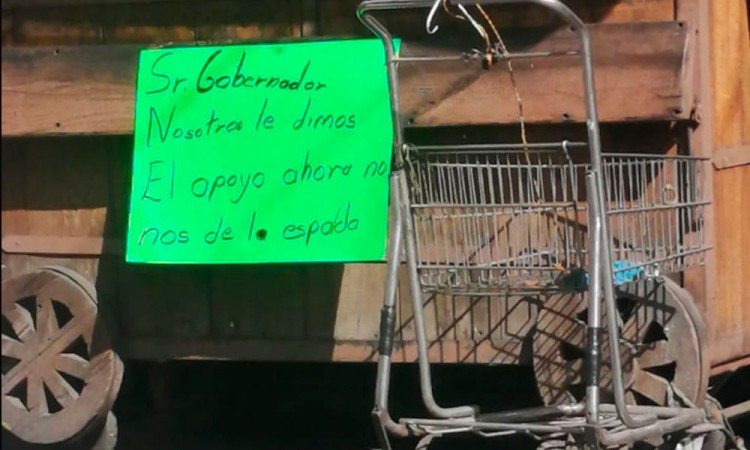 Sr. Gobernador
Nosotros le dimos
El apoyo ahora no
nos de la espalda